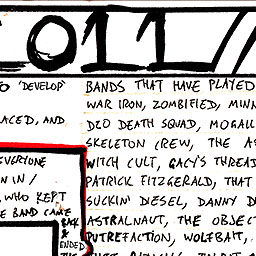 2011/
O 'DEVELOP'
ACED, AND
EVERYONE
N IN /
WHO KEPT
E BAND CAME
BACK
&
ENDED
BANDS THAT HAVE PLAYED
WAR IRON, ZOMBIFIED, MINN
D20 DEATH SQUAD, MOGALL
SKELETON CREW, THE AS
WITCH CULT, GACY'S THREAD
PATRICK FITZGERALD, THAT
SUCKIN' DIESEL, DANNY D
ASTRALNAUT, THE OBJECT
PUTREFACTION, WOLFBAIT,